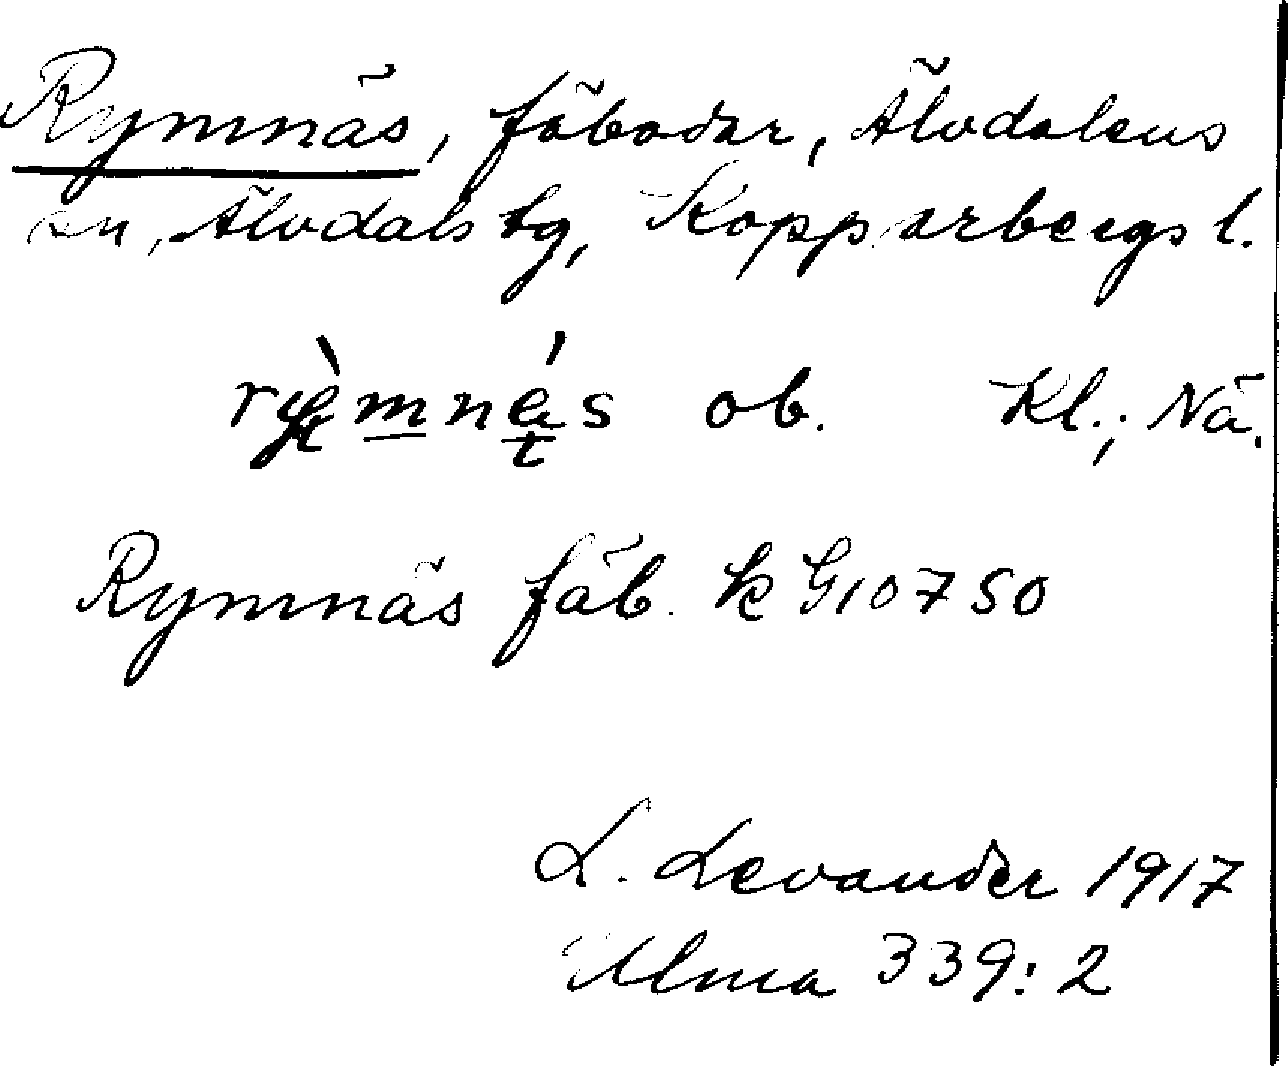 Rymnäs, fäbodar, Älvdalens
sn, Älvdals tg, Kopparbergs l.
ob. Kl.; Nä.
Rymnäs fäb. k G10750
L. Levander 1917
Ulma 339:2